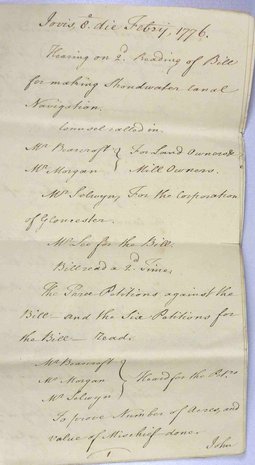 Jovis, 8.° die Febry, 1776.
Hearing on 2.d Reading of Bill
for making Stroudwater Canal
Navigation.
Counsel called in.
Mr Bearcroft } For Land Owners &
Mr Morgan } Mill Owners.
Mr Selwyn, For the Corporation
of Gloucester.
Mr Lee for the Bill.
Bill read a 2.d Time,
The Three Petitions against the
Bill — and the Six Petitions for
the Bill — read.
Mr Bearcroft
Mr Morgan } Heard for the Petrs
Mr Selwyn
To prove Number of Acres, and
Value of Mischief done.
John